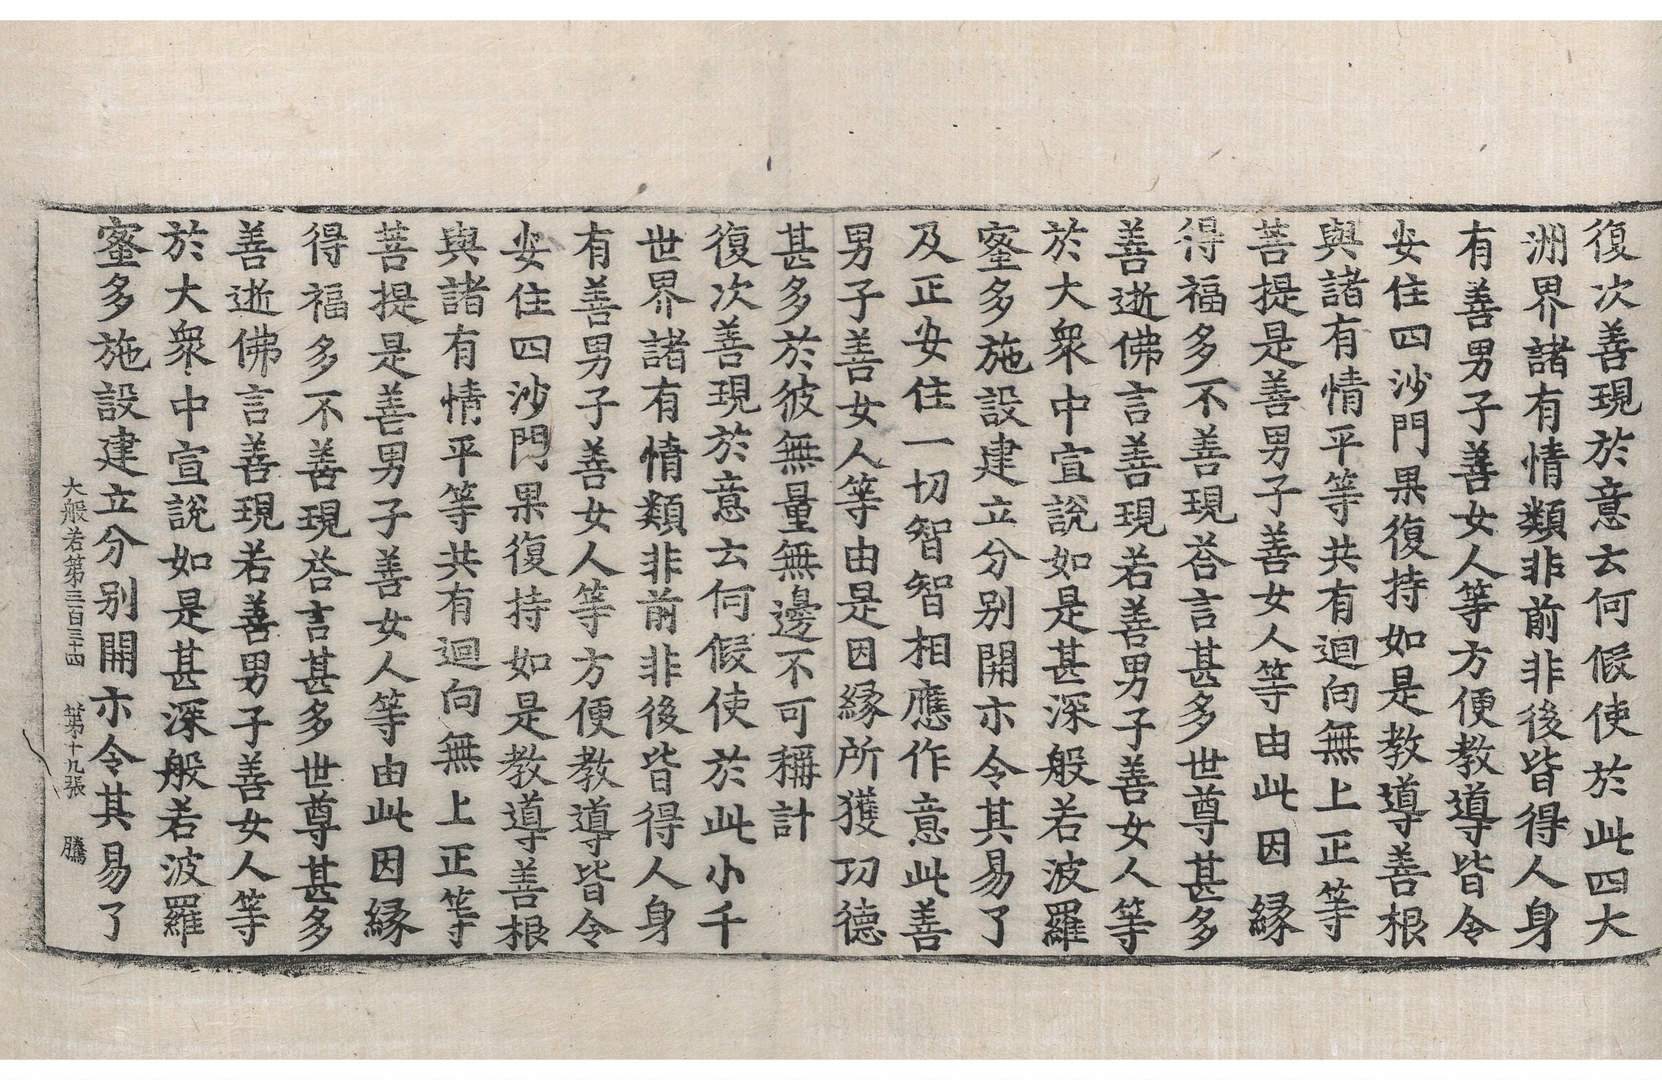 復次善現於意云何假使於此四大
洲界諸有情類非前非後皆得人身
有善男子善女人等方便教導皆令
安住四沙門果復持如是教導善根
與諸有情平等共有迴向無上正等
菩提是善男子善女人等由此因緣
得福多不善現荅言甚多世尊甚多
善逝佛言善現若善男子善女人等
於大衆中宣說如是甚深般若波羅
蜜多施設建立分别開示令其易了
及正安住一切智智相應作意此善
男子善女人等由是因緣所獲功德
甚多於彼無量無邊不可稱計
復次善現於意云何假使於此小千
世界諸有情類非前非後皆得人身
有善男子善女人等方便教導皆令
安住四沙門果復持如是教導善根
與諸有情平等共有迴向無上正等
菩提是善男子善女人等由此因緣
得福多不善現荅言甚多世尊甚多
善逝佛言善現若善男子善女人等
於大衆中宣說如是甚深般若波羅
蜜多施設建立分别開示令其易了
大般若第三百三十四 第十九張 騰